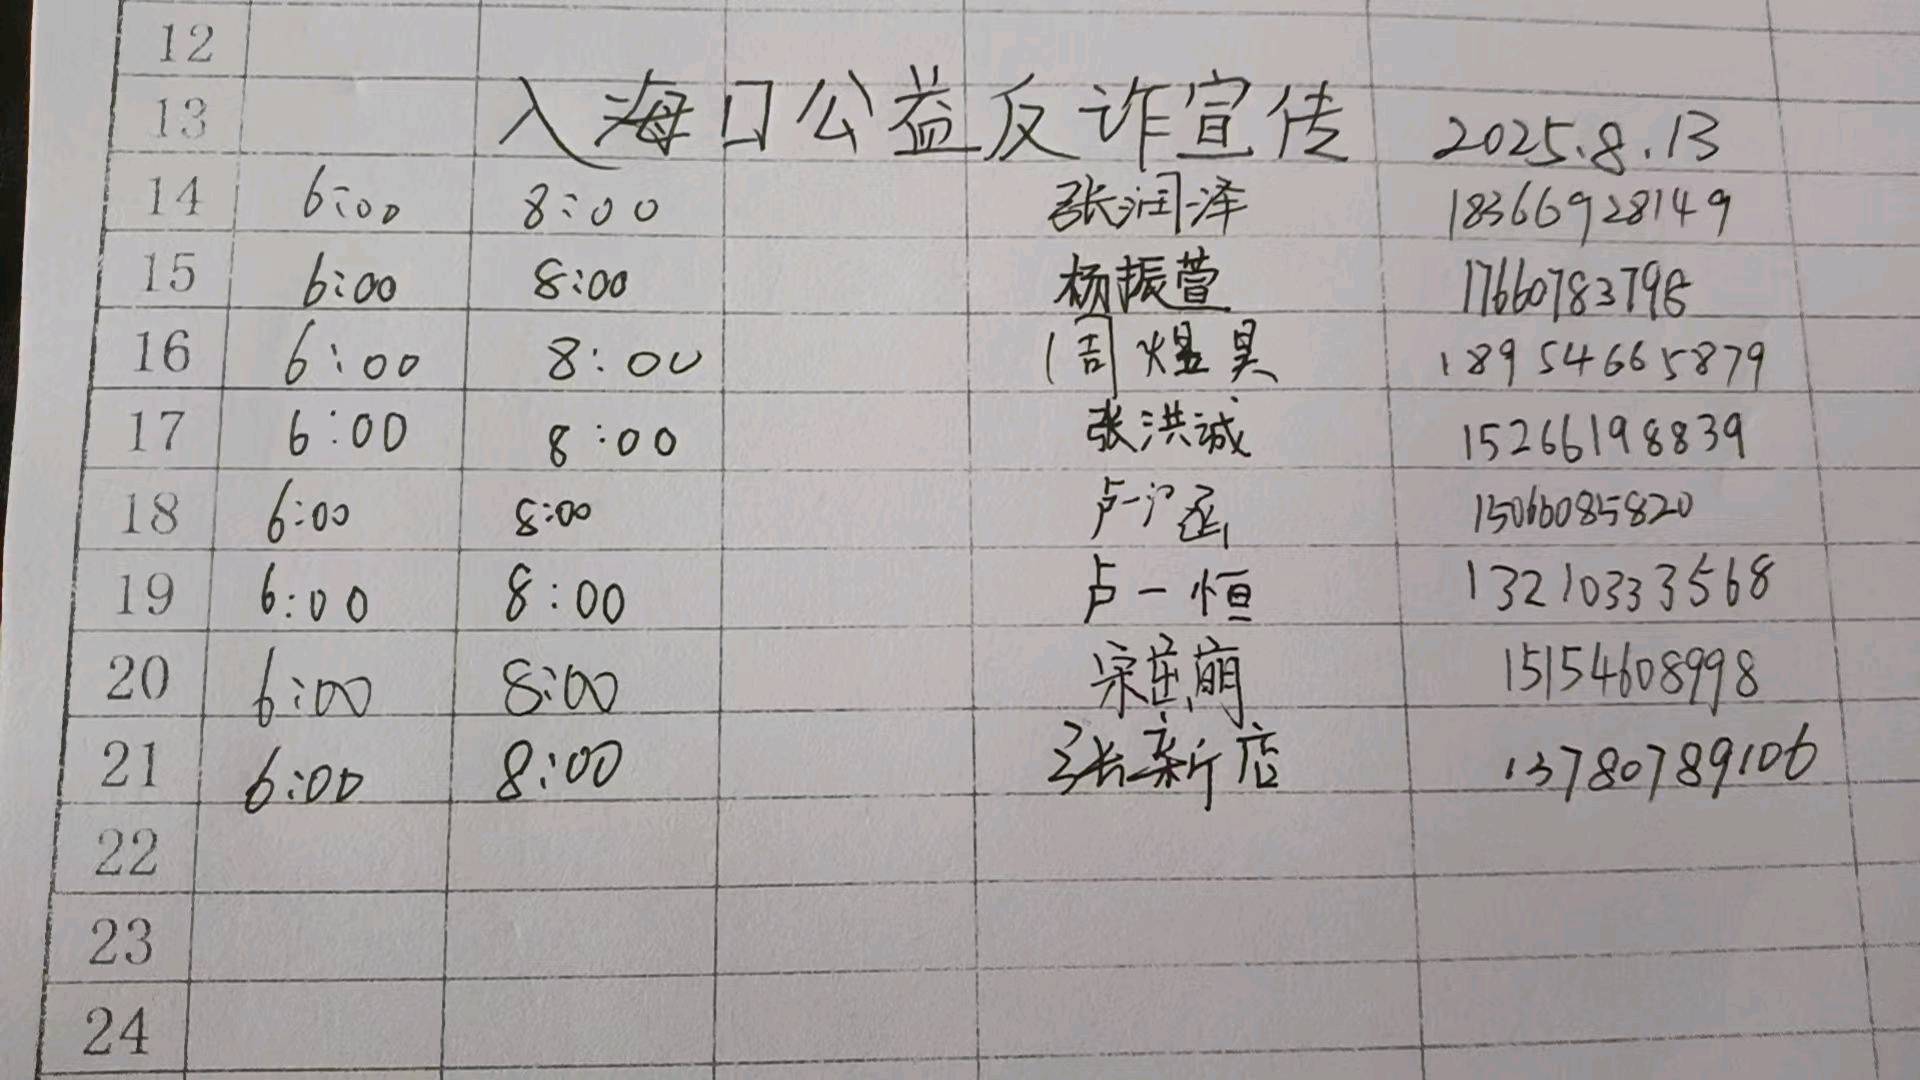 12
13 入海口公益反诈宣传 2025.8.13
14 6:00 8:00 张润泽 18366928149
15 6:00 8:00 杨振萱 17660783798
16 6:00 8:00 周煜昊 18954665879
17 6:00 8:00 张洪诚 15266198839
18 6:00 8:00 卢一涵 15066085820
19 6:00 8:00 卢一恒 13210333568
20 6:00 8:00 宗茁萌 15154608998
21 6:00 8:00 张新店 13780789106
22
23
24